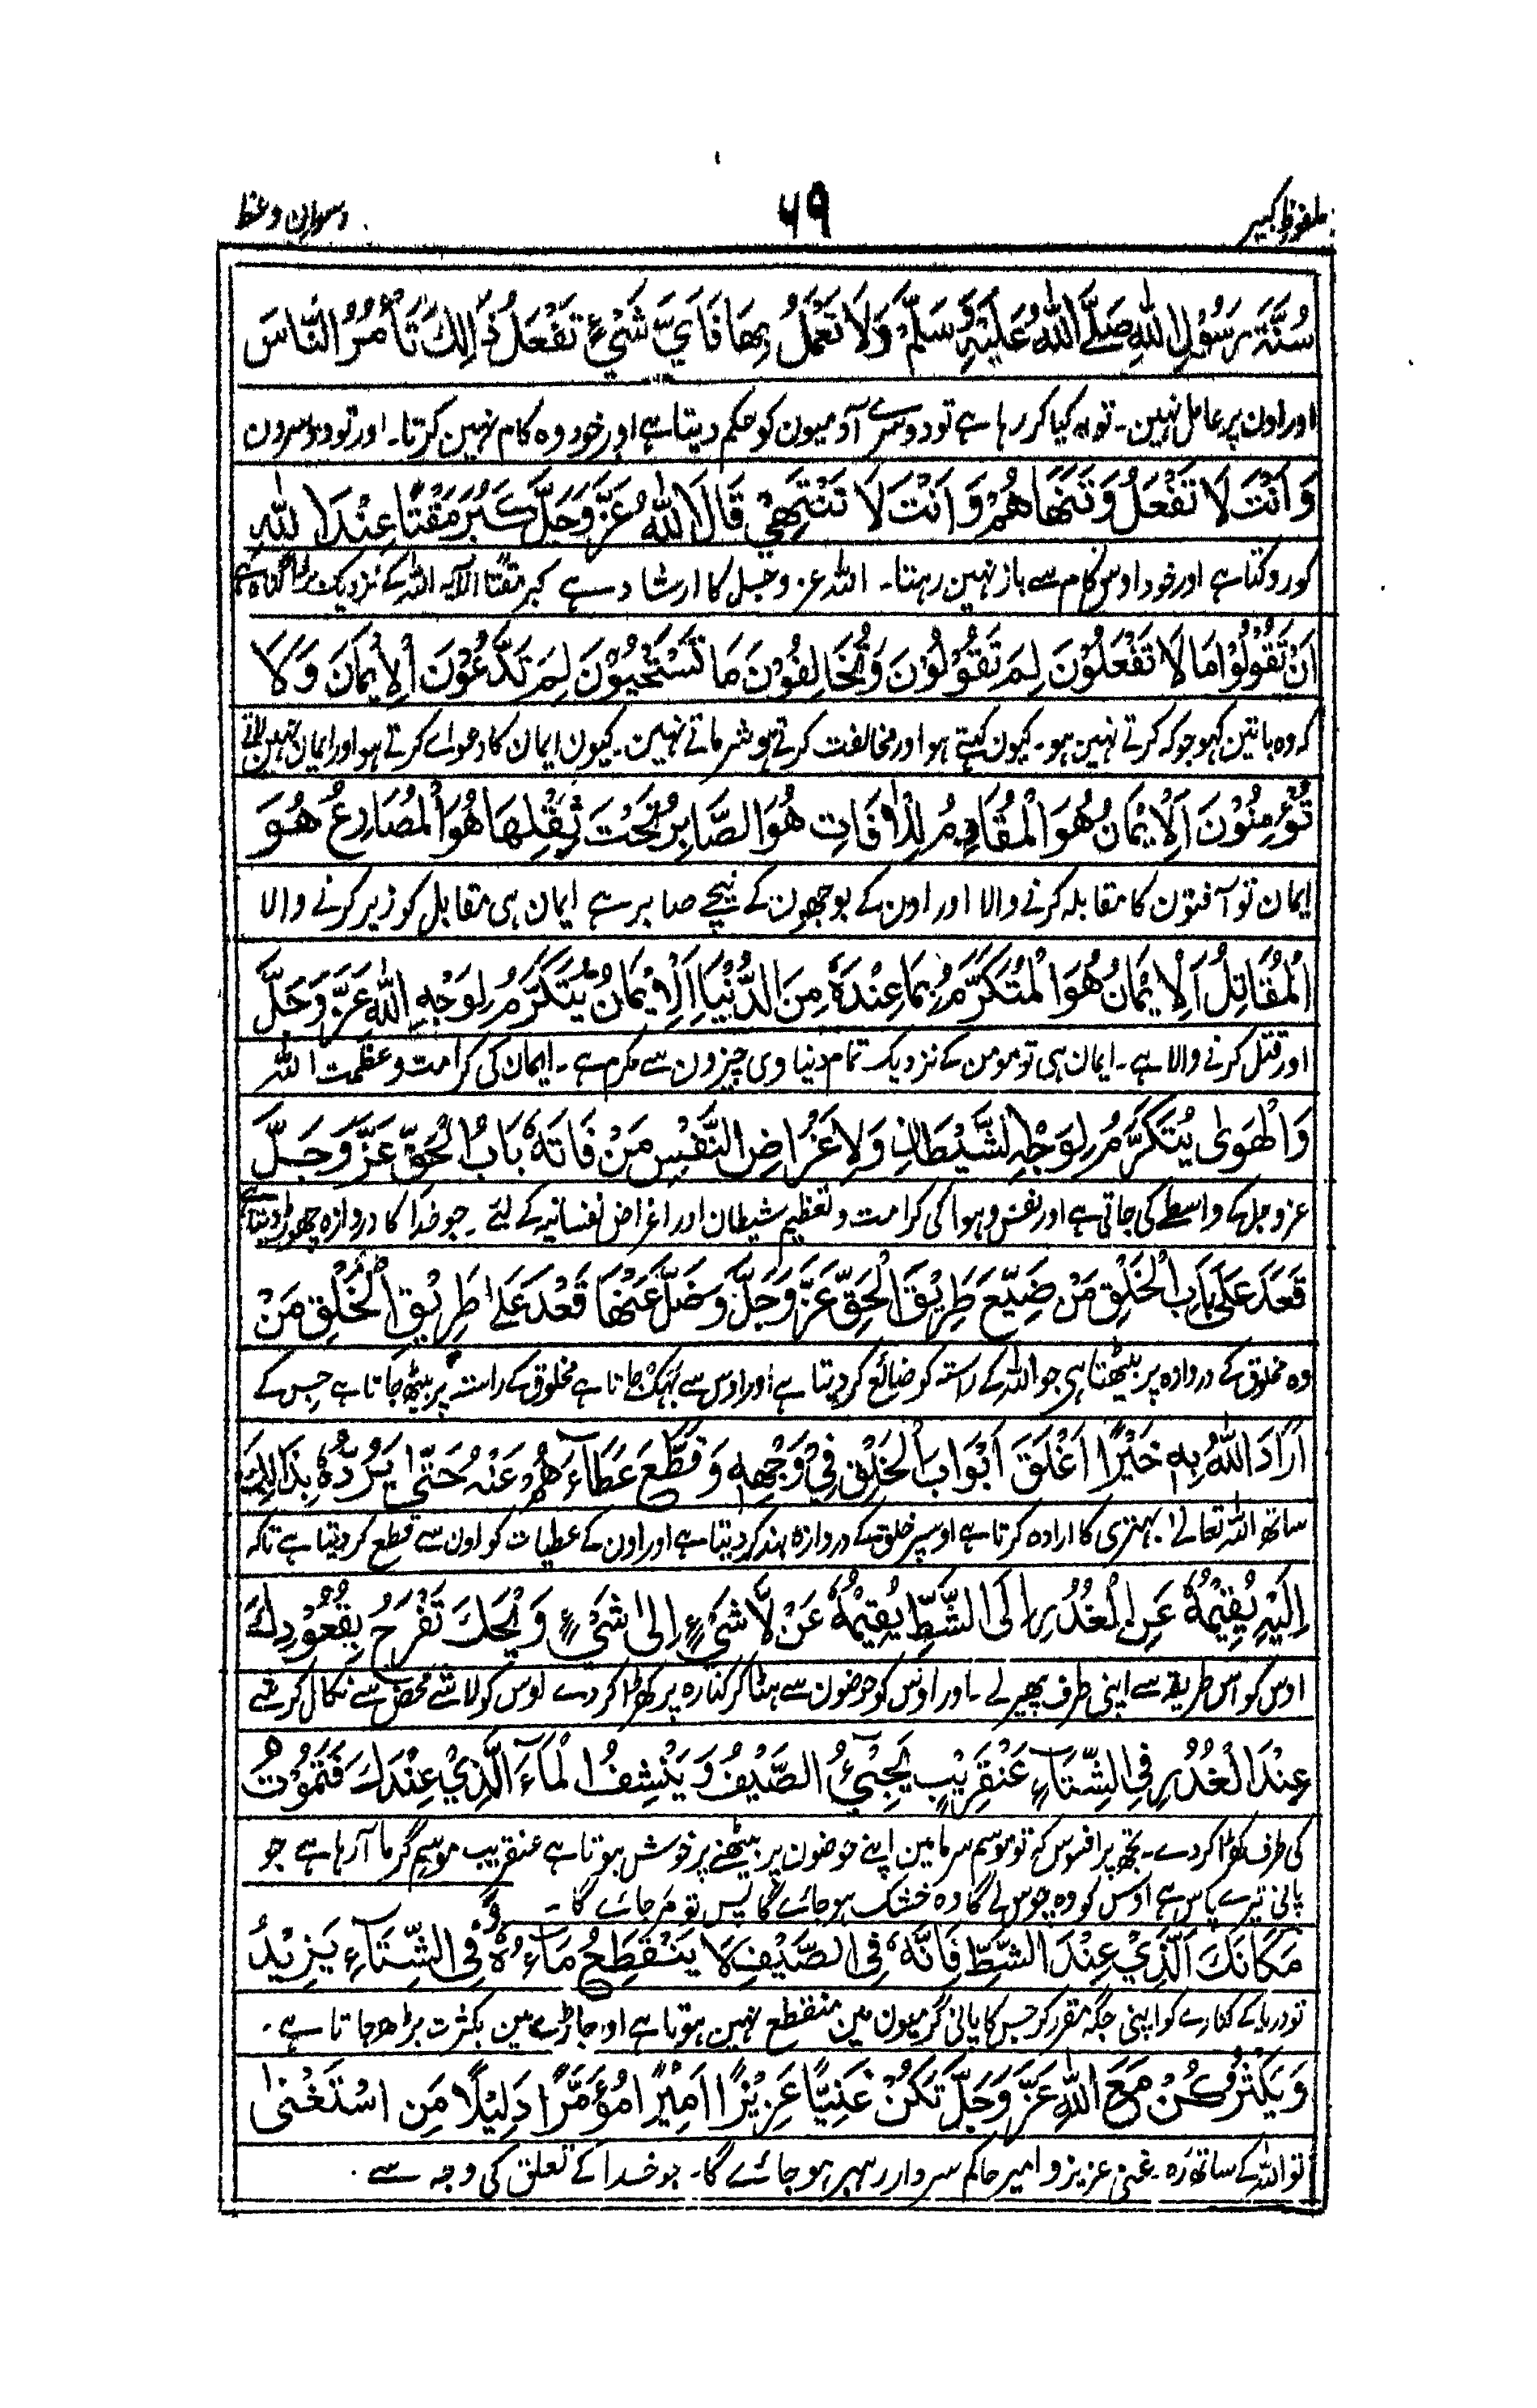 ملفوظ کبیر
٦٩
دسوان وعظ
سُنَّةَ رَسُوْلِ اللّٰهِ صَلَّے اللّٰهُ عَلَيْهِ وَسَلَّمَ وَلَا تَعْمَلُ بِهَا فَاَيَّ شَيْءٍ تَفْعَلُ ذٰلِكَ تَأْمُرُ النَّاسَ
اور اون پر عامل نہین۔ تو یہ کیا کر رہا ہے تو دوسرے آدمیون کو حکم دیتا ہے اور خود وہ کام نہین کرتا۔ اور تو دوسرون
وَاَنْتَ لَا تَفْعَلُ وَتَنْهَاهُمْ وَاَنْتَ لَا تَنْتَهِيْ قَالَ اللّٰهُ عَزَّوَجَلَّ كَبُرَ مَقْتًا عِنْدَ اللّٰهِ
کو روکتا ہے اور خود اوس کام سے باز نہین رہتا۔ اللہ عز وجل کا ارشاد ہے کبر مقتًا الآیہ اللہ کے نزدیک بڑا گناہ ہے
اَنْ تَقُوْلُوْا مَا لَا تَفْعَلُوْنَ لِمَ تَقُوْلُوْنَ وَتُخَالِفُوْنَ مَا تَسْتَحْيُوْنَ لِمَ تَدَّعُوْنَ الْاِيْمَانَ وَلَا
کہ وہ باتین کہو جو کہ کرتے نہین ہو۔ کیون کہتے ہو اور مخالفت کرتے ہو شرماتے نہین۔ کیون ایمان کا دعواے کرتے ہو اور ایمان نہین لاتے
تُؤْمِنُوْنَ اَلْاِيْمَانُ هُوَ الْمُقَاوِمُ لِلْاٰفَاتِ هُوَ الصَّابِرُ تَحْتَ ثِقْلِهَا هُوَ الْمُصَارِعُ هُوَ
ایمان تو آفتون کا مقابلہ کرنے والا اور اون کے بوجھون کے نیچے صابر ہے ایمان ہی مقابل کو زیر کرنے والا
الْمُقَاتِلُ اَلْاِيْمَانُ هُوَ الْمُتَكَرَّمُ بِمَا عِنْدَهٗ مِنَ الدُّنْيَا اَلْاِيْمَانُ يُتَكَرَّمُ لِوَجْهِ اللّٰهِ عَزَّوَجَلَّ
اور قتل کرنے والا ہے۔ ایمان ہی تو مومن کے نزدیک تمام دنیاوی چیزون سے مکرم ہے۔ ایمان کی کرامت وعظمت اللہ
وَالْهَوٰى يُتَكَرَّمُ لِوَجْهِ الشَّيْطَانِ وَلِاَغْرَاضِ النَّفْسِ مَنْ فَاتَهٗ بَابُ الْحَقِّ عَزَّوَجَلَّ
عزوجل کے واسطے کی جاتی ہے اور نفس وہوا کی کرامت وتعظیم شیطان اور اغراض نفسانیہ کے لئے۔ جو خدا کا دروازہ چھوڑ دیتا ہے
قَعَدَ عَلٰى بَابِ الْخَلْقِ مَنْ ضَيَّعَ طَرِيْقَ الْحَقِّ عَزَّوَجَلَّ وَضَلَّ عَنْهَا قَعَدَ عَلٰى طَرِيْقِ الْخَلْقِ مَنْ
وہ مخلوق کے دروازہ پر بیٹھتا ہی جو اللہ کے راستہ کو ضائع کر دیتا ہے اور اوس سے بہک جاتا ہے مخلوق کے راستہ پر بیٹھ جاتا ہے جس کے
اَرَادَ اللّٰهُ بِهٖ خَيْرًا اَغْلَقَ اَبْوَابَ الْخَلْقِ فِيْ وَجْهِهٖ وَقَطَّعَ عَطَآءَهُمْ عَنْهُ حَتّٰى يَرُدَّهٗ بِذَالِكَ
ساتھ اللہ تعالےٰ بہتری کا ارادہ کرتا ہے اوسپر خلق کے دروازہ بند کر دیتا ہے اور اون کے عطیات کو اون سے قطع کر دیتا ہے تاکہ
اِلَيْهِ يُقِيْمُهٗ عَنِ الْغُدُرِ اِلَى الشَّطِّ يُقِيْمُهٗ عَنْ لَّا شَيْءٍ اِلٰى شَيْءٍ وَيْحَكَ تَفْرَحُ بِقُعُوْدِكَ
اوس کو اس طریقہ سے اپنی طرف پھیر لے۔ اور اوس کو حوضون سے ہٹا کر کنارہ پر کھڑا کر دے اوس کو لاشے محض سے نکال کر شے
عِنْدَ الْغُدُرِ فِي الشِّتَآءِ عَنْقَرِيْبٍ يَجِيْئُ الصَّيْفُ وَيَنْشِفُ الْمَآءَ الَّذِيْ عِنْدَكَ فَتَمُوْتُ
کی طرف کھڑا کر دے۔ تجھ پر افسوس کہ تو موسم سرما مین اپنے حوضون پر بیٹھنے پر خوش ہوتا ہے عنقریب موسم گرما آ رہا ہے جو
پانی تیرے پاس ہے اوس کو وہ چوس لے گا وہ خشک ہو جائے گا پس تو مر جائے گا۔
مَكَانَكَ الَّذِيْ عِنْدَ الشَّطِّ فَاِنَّهٗ فِي الصَّيْفِ لَا يَنْقَطِعُ مَاءُهٗ وَفِي الشِّتَآءِ يَزِيْدُ
تو دریا کے کنارے کو اپنی جگہ مقرر کر جس کا پانی گرمیون مین منقطع نہین ہوتا ہے اور جاڑے مین بکثرت بڑھ جاتا ہے۔
وَيَكْثُرُ كُنْ مَعَ اللّٰهِ عَزَّوَجَلَّ تَكُنْ غَنِيًّا عَزِيْزًا اَمِيْرًا مُؤَمَّرًا دَلِيْلًا مَنِ اسْتَغْنٰى
تو اللہ کے ساتھ رہ۔ غنی عزیز وامیر حاکم سردار رہبر ہو جائے گا۔ جو خدا کے تعلق کی وجہ سے